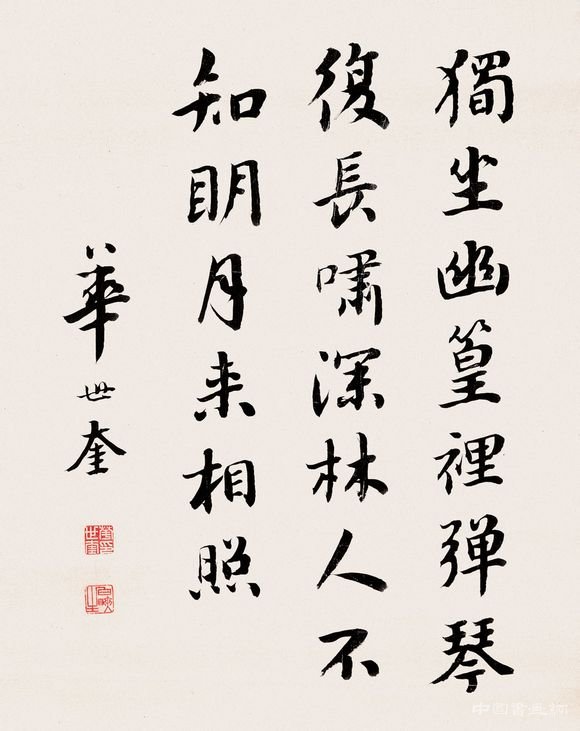 獨坐幽篁裡彈琴
復長嘯深林人不
知明月来相照
華世奎
中国書画網